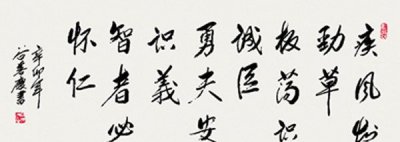 疾風知
勁草
板蕩識
誠臣
勇夫安
識義
智者必
怀仁
辛卯年
書